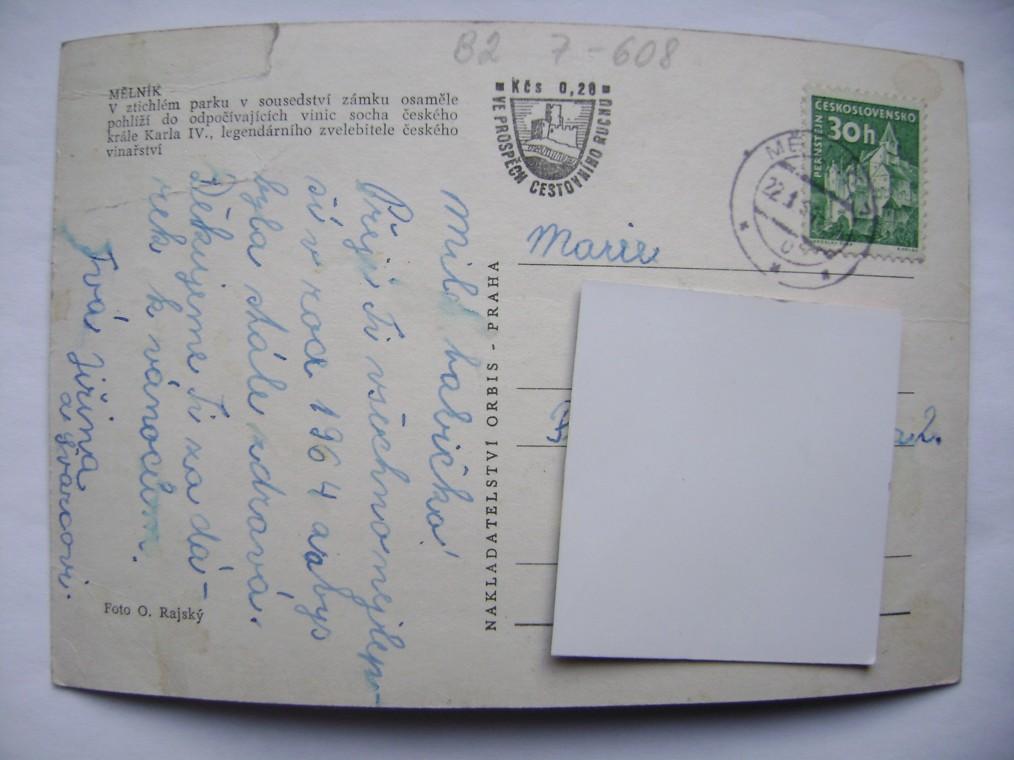 B2 7-608
MĚLNÍK
V ztichlém parku v sousedství zámku osaměle
pohlíží do odpočívajících vinic socha českého
krále Karla IV., legendárního zvelebitele českého
vinařství
Kčs 0,20
VE PROSPĚCH CESTOVNÍHO RUCHU
ČESKOSLOVENSKO
30h
PERNŠTEJN
Marie
Milá babičko!
Přeji Ti všechno nejlep-
ší v roce 1964 a abys
byla stále zdravá.
Děkujeme Ti za dá-
rek k vánocům.
Tvá Jiřina
a Švarcovi.
NAKLADATELSTVÍ ORBIS - PRAHA
Foto O. Rajský